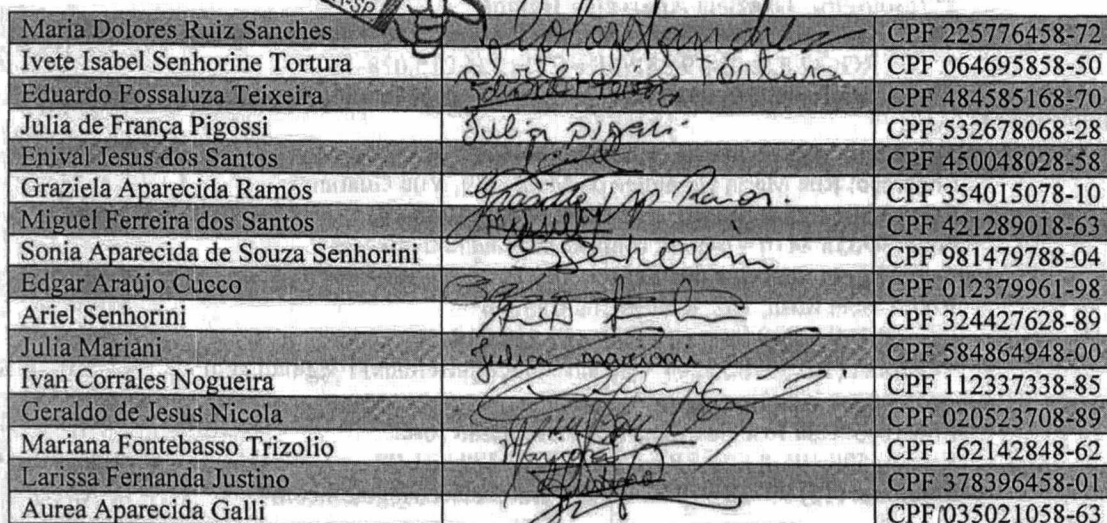 SP
Maria Dolores Ruiz Sanches CPF 225776458-72
Ivete Isabel Senhorine Tortura Ivete I. S Tortura CPF 064695858-50
Eduardo Fossaluza Teixeira CPF 484585168-70
Julia de França Pigossi Julia CPF 532678068-28
Enival Jesus dos Santos CPF 450048028-58
Graziela Aparecida Ramos Ramos. CPF 354015078-10
Miguel Ferreira dos Santos CPF 421289018-63
Sonia Aparecida de Souza Senhorini SSenhorini CPF 981479788-04
Edgar Araújo Cucco CPF 012379961-98
Ariel Senhorini CPF 324427628-89
Julia Mariani Julia mariani CPF 584864948-00
Ivan Corrales Nogueira CPF 112337338-85
Geraldo de Jesus Nicola CPF 020523708-89
Mariana Fontebasso Trizolio Mariana CPF 162142848-62
Larissa Fernanda Justino CPF 378396458-01
Aurea Aparecida Galli CPF 035021058-63